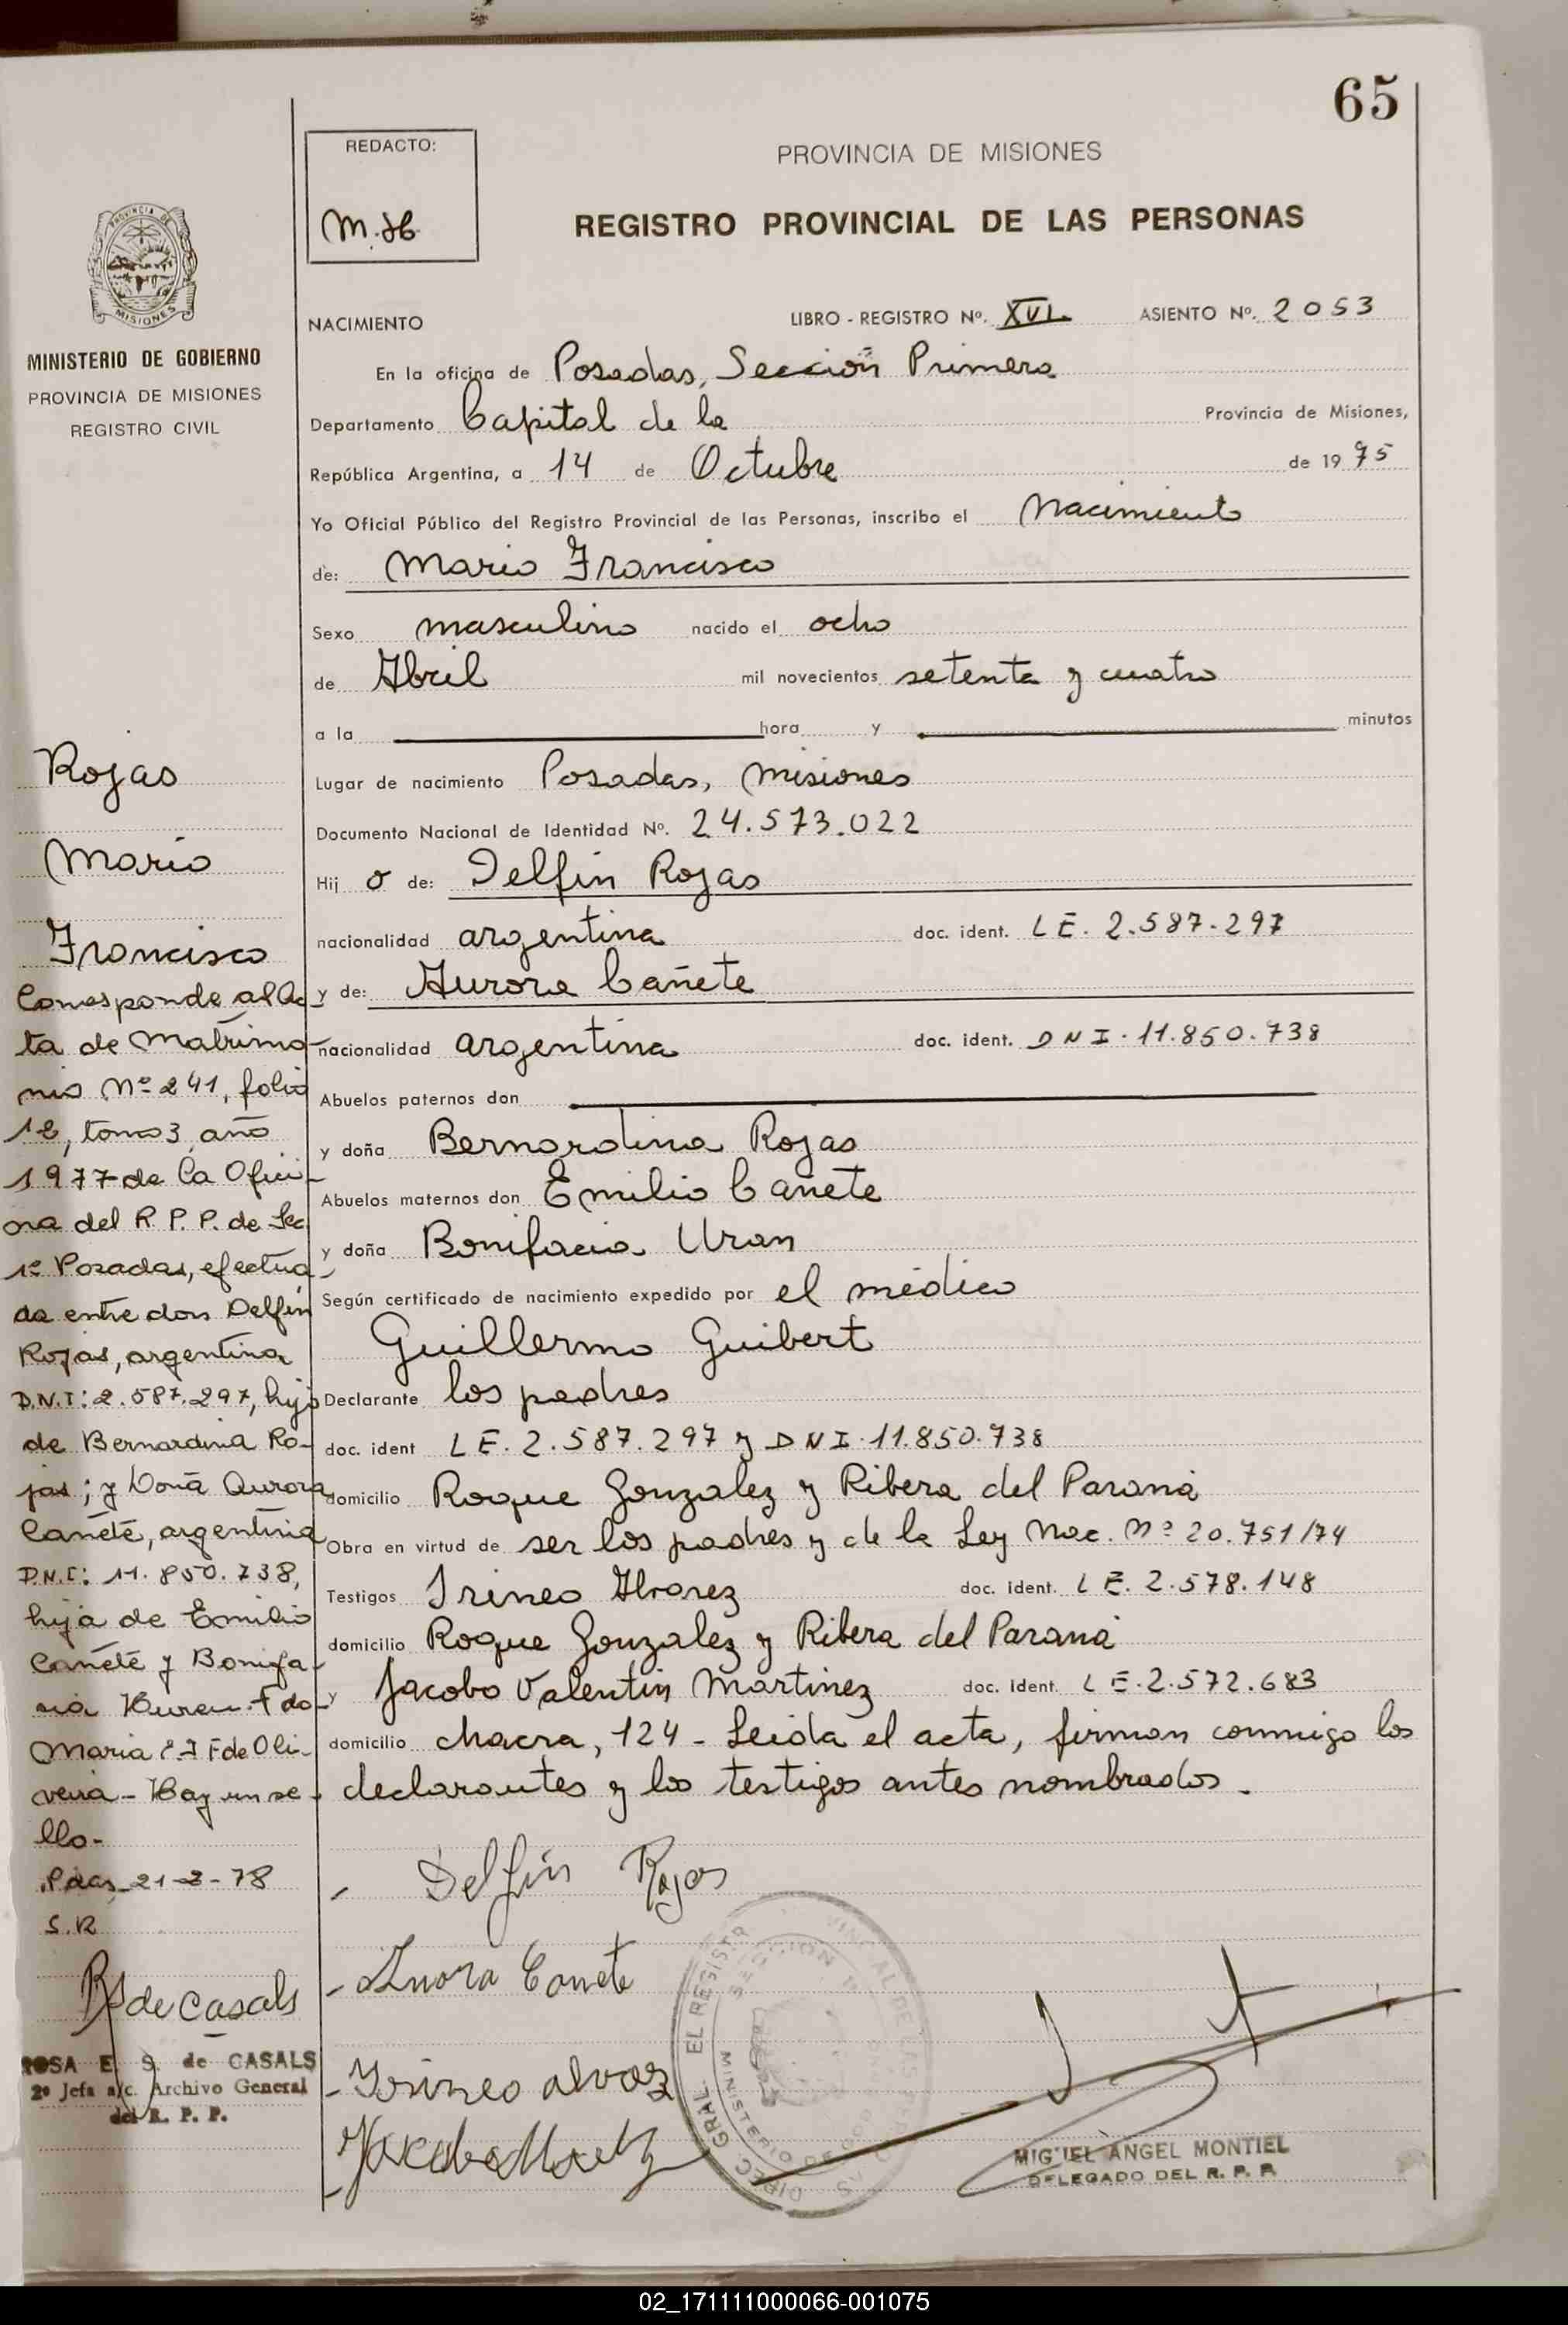 65
REDACTO:
PROVINCIA DE MISIONES
REGISTRO PROVINCIAL DE LAS PERSONAS
MISIONES
MINISTERIO DE GOBIERNO
PROVINCIA DE MISIONES
REGISTRO CIVIL
NACIMIENTO LIBRO - REGISTRO Nº. XVI ASIENTO Nº. 2053
En la oficina de Posadas, Sección Primera
Departamento Capital de la Provincia de Misiones,
República Argentina, a 14 de Octubre de 1975
Yo Oficial Público del Registro Provincial de las Personas, inscribo el Nacimiento
de: Mario Francisco
Sexo masculino nacido el ocho
de Abril mil novecientos setenta y cuatro
a la hora y minutos
Lugar de nacimiento Posadas, Misiones
Documento Nacional de Identidad Nº. 24.573.022
Hij o de: Delfin Rojas
nacionalidad argentina doc. ident. LE. 2.587.297
y de: Aurora Cañete
nacionalidad argentina doc. ident. DNI. 11.850.738
Abuelos paternos don
y doña Bernardina Rojas
Abuelos maternos don Emilio Cañete
y doña Bonifacia Uran
Según certificado de nacimiento expedido por el médico
Guillermo Guibert
Declarante los padres
doc. ident LE. 2.587.297 y DNI. 11.850.738
domicilio Roque Gonzalez y Ribera del Paraná
Obra en virtud de ser los padres y de la Ley Nac. Nº 20.751/74
Testigos Irineo Alvarez doc. ident. LE. 2.578.148
domicilio Roque Gonzalez y Ribera del Paraná
y Jacobo Valentin Martinez doc. ident. LE. 2.572.683
domicilio chacra, 124 - Leida el acta, firman conmigo los
declarantes y los testigos antes nombrados.
Rojas
Mario
Francisco
Corresponde al Ac-
ta de Matrimo-
nio Nº 241, folio
12, tomo 3, año
1977 de la Ofici-
na del R. P. P. de Sec.
1º Posadas, efectua-
da entre don Delfin
Rojas, argentina
D.N.I: 2.587.297, hijo
de Bernardina Ro-
jas; y Doña Aurora
Cañete, argentina
D.N.I: 11.850.738,
hija de Emilio
Cañete y Bonifa-
cia Fdo
Maria de Oli-
veira - Hay un se-
llo-
Pdas, 21-2-78
S.R
de Casals
ROSA E. S. de CASALS
2º Jefa a/c. Archivo General
del R. P. P.
Delfín Rojas
Canete
Irineo
MIGUEL ANGEL MONTIEL
DELEGADO DEL R. P. P.
02_171111000066-001075